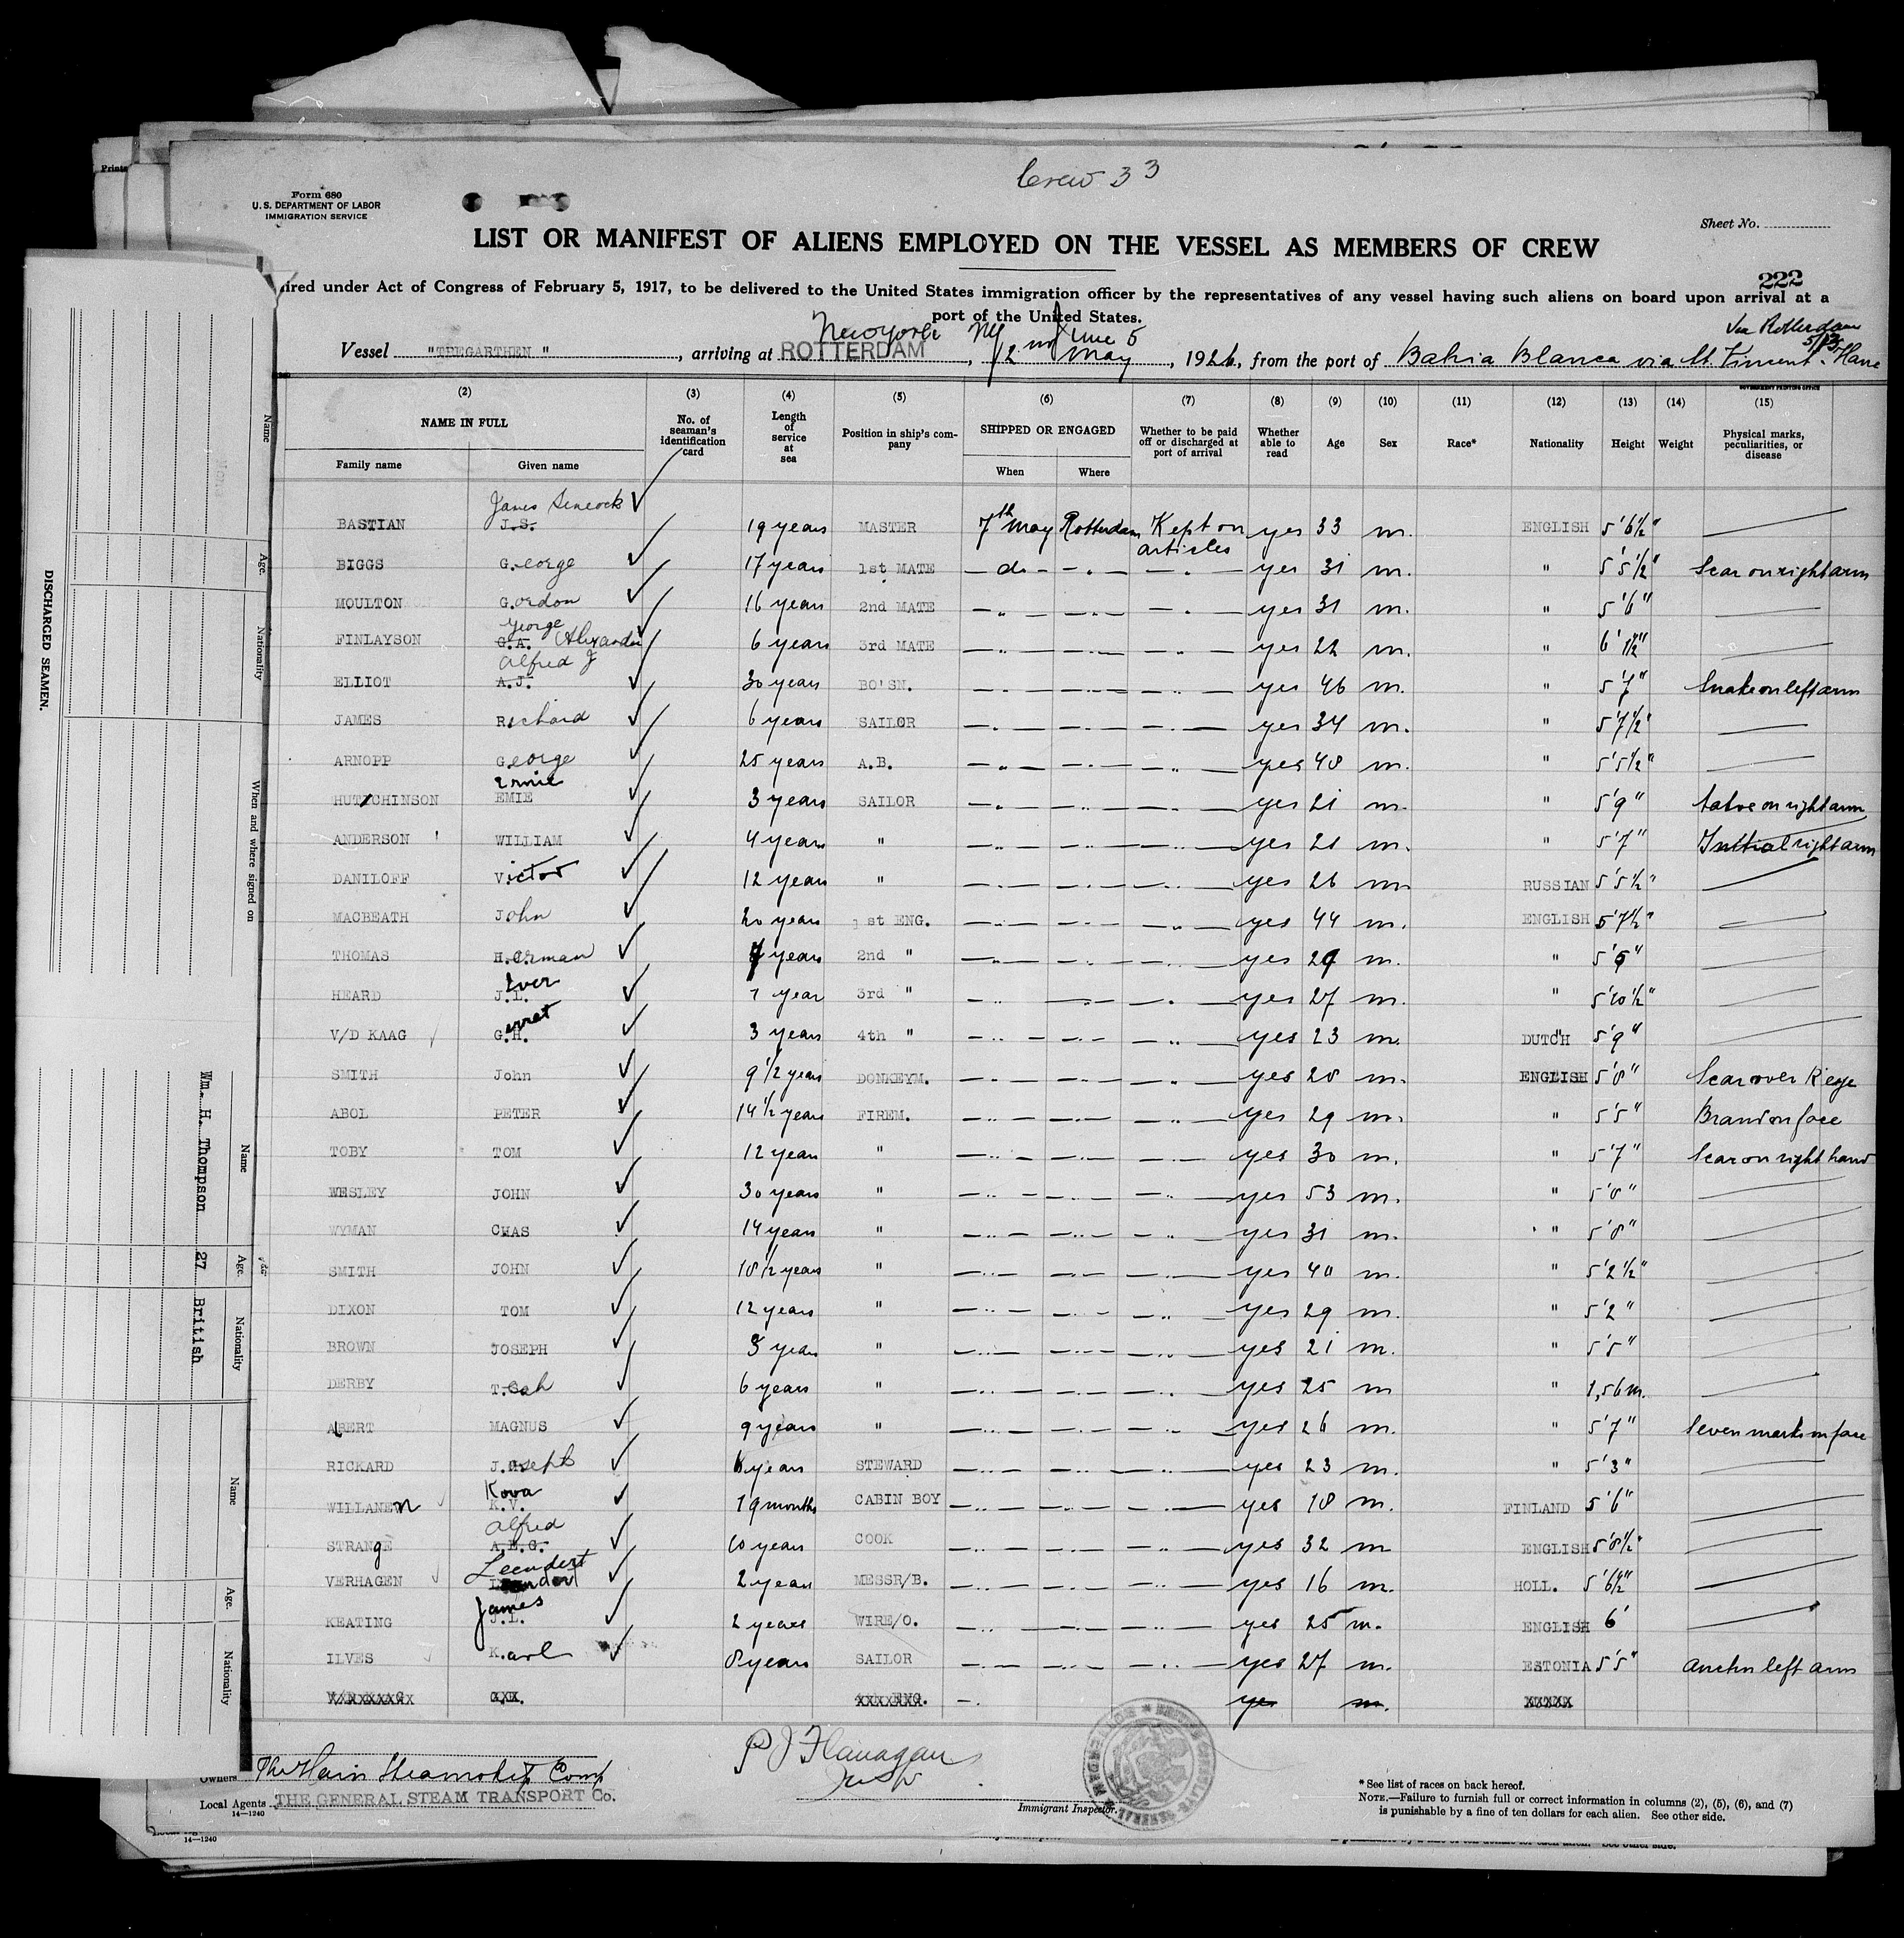 Crew 33
Form 680
U.S. DEPARTMENT OF LABOR
IMMIGRATION SERVICE
Sheet No.
LIST OR MANIFEST OF ALIENS EMPLOYED ON THE VESSEL AS MEMBERS OF CREW
222
ired under Act of Congress of February 5, 1917, to be delivered to the United States immigration officer by the representatives of any vessel having such aliens on board upon arrival at a
port of the United States.
New York NY June 5 Via Rotterdam
Vessel "TREGARTHEN", arriving at ROTTERDAM, 12 May, 1926, from the port of Bahia Blanca via St. Vincent
GOVERNMENT PRINTING OFFICE
(2) (3) (4) (5) (6) (7) (8) (9) (10) (11) (12) (13) (14) (15)
NAME IN FULL No. of seaman's identification card Length of service at sea Position in ship's company SHIPPED OR ENGAGED Whether to be paid off or discharged at port of arrival Whether able to read Age Sex Race* Nationality Height Weight Physical marks, peculiarities, or disease
Family name Given name When Where
BASTIAN J.S. James 19 years MASTER 7th May Rotterdam Kept on articles yes 33 m. ENGLISH 5'6½"
BIGGS George 17 years 1st MATE — do — yes 31 m. " 5'5½" Scar on right arm
MOULTON Gordon 16 years 2nd MATE yes 31 m. " 5'6"
FINLAYSON G.A. George Alexander 6 years 3rd MATE yes 22 m. " 6'1½"
ELLIOT A.J. Alfred J 30 years BO'SN. yes 46 m. " 5'7" Snake on left arm
JAMES Richard 6 years SAILOR yes 34 m. " 5'7½"
ARNOPP George 25 years A.B. yes 48 m. " 5'5½"
HUTCHINSON EMIE Ernie 3 years SAILOR yes 21 m. " 5'9" tatoe on right arm
ANDERSON WILLIAM 4 years " yes 21 m. " 5'7" Initial right arm
DANILOFF Victor 12 years " yes 26 m. RUSSIAN 5'5½"
MACBEATH John 20 years 1st ENG. yes 44 m. ENGLISH 5'7½"
THOMAS Herman years 2nd " yes 29 m. "
HEARD J.L. Iver 1 year 3rd " yes 27 m. " 5'10½"
V/D KAAG G.H. erret 3 years 4th " yes 23 m. DUTCH 5'9"
SMITH John 9½ years DONKEYM. yes 28 m. ENGLISH 5'8" Scar over R eye
ABOL PETER 14½ years FIREM. yes 29 m. " 5'5" Brand on face
TOBY TOM 12 years " yes 30 m. " 5'7" Scar on right hand
WESLEY JOHN 30 years " yes 53 m. " 5'8"
WYMAN CHAS 14 years " yes 31 m. " 5'8"
SMITH JOHN 18½ years " yes 40 m. " 5'2½"
DIXON TOM 12 years " yes 29 m. " 5'2"
BROWN JOSEPH 3 years " yes 21 m. " 5'5"
DERBY 6 years " yes 25 m " 1,56 m.
ALBERT MAGNUS 9 years " yes 26 m. " 5'7" Seven marks on face
RICKARD Joseph 6 years STEWARD yes 23 m. " 5'3"
WILLANEN K.V. Kova 19 months CABIN BOY yes 18 m. FINLAND 5'6"
STRANGE A.E.G. Alfred 10 years COOK yes 32 m ENGLISH 5'8½"
VERHAGEN Leendert 2 years MESSR/B. yes 16 m. HOLL. 5'6½"
KEATING J.L. James 2 years WIRE/O. yes 25 m. ENGLISH 6'
ILVES Karl 8 years SAILOR yes 27 m. ESTONIA 5'5" Anchor left arm
yes m.
Owners The Hain Steamship Comp
Local Agents THE GENERAL STEAM TRANSPORT Co.
14—1240
P J Flanagan
Immigrant Inspector.
*See list of races on back hereof.
NOTE.—Failure to furnish full or correct information in columns (2), (5), (6), and (7)
is punishable by a fine of ten dollars for each alien. See other side.
14—1240
DISCHARGED SEAMEN.
Name Age. Nationality When and where signed on
Name Age. Nationality
Wm. H. Thompson 27 British
Name Age. Nationality